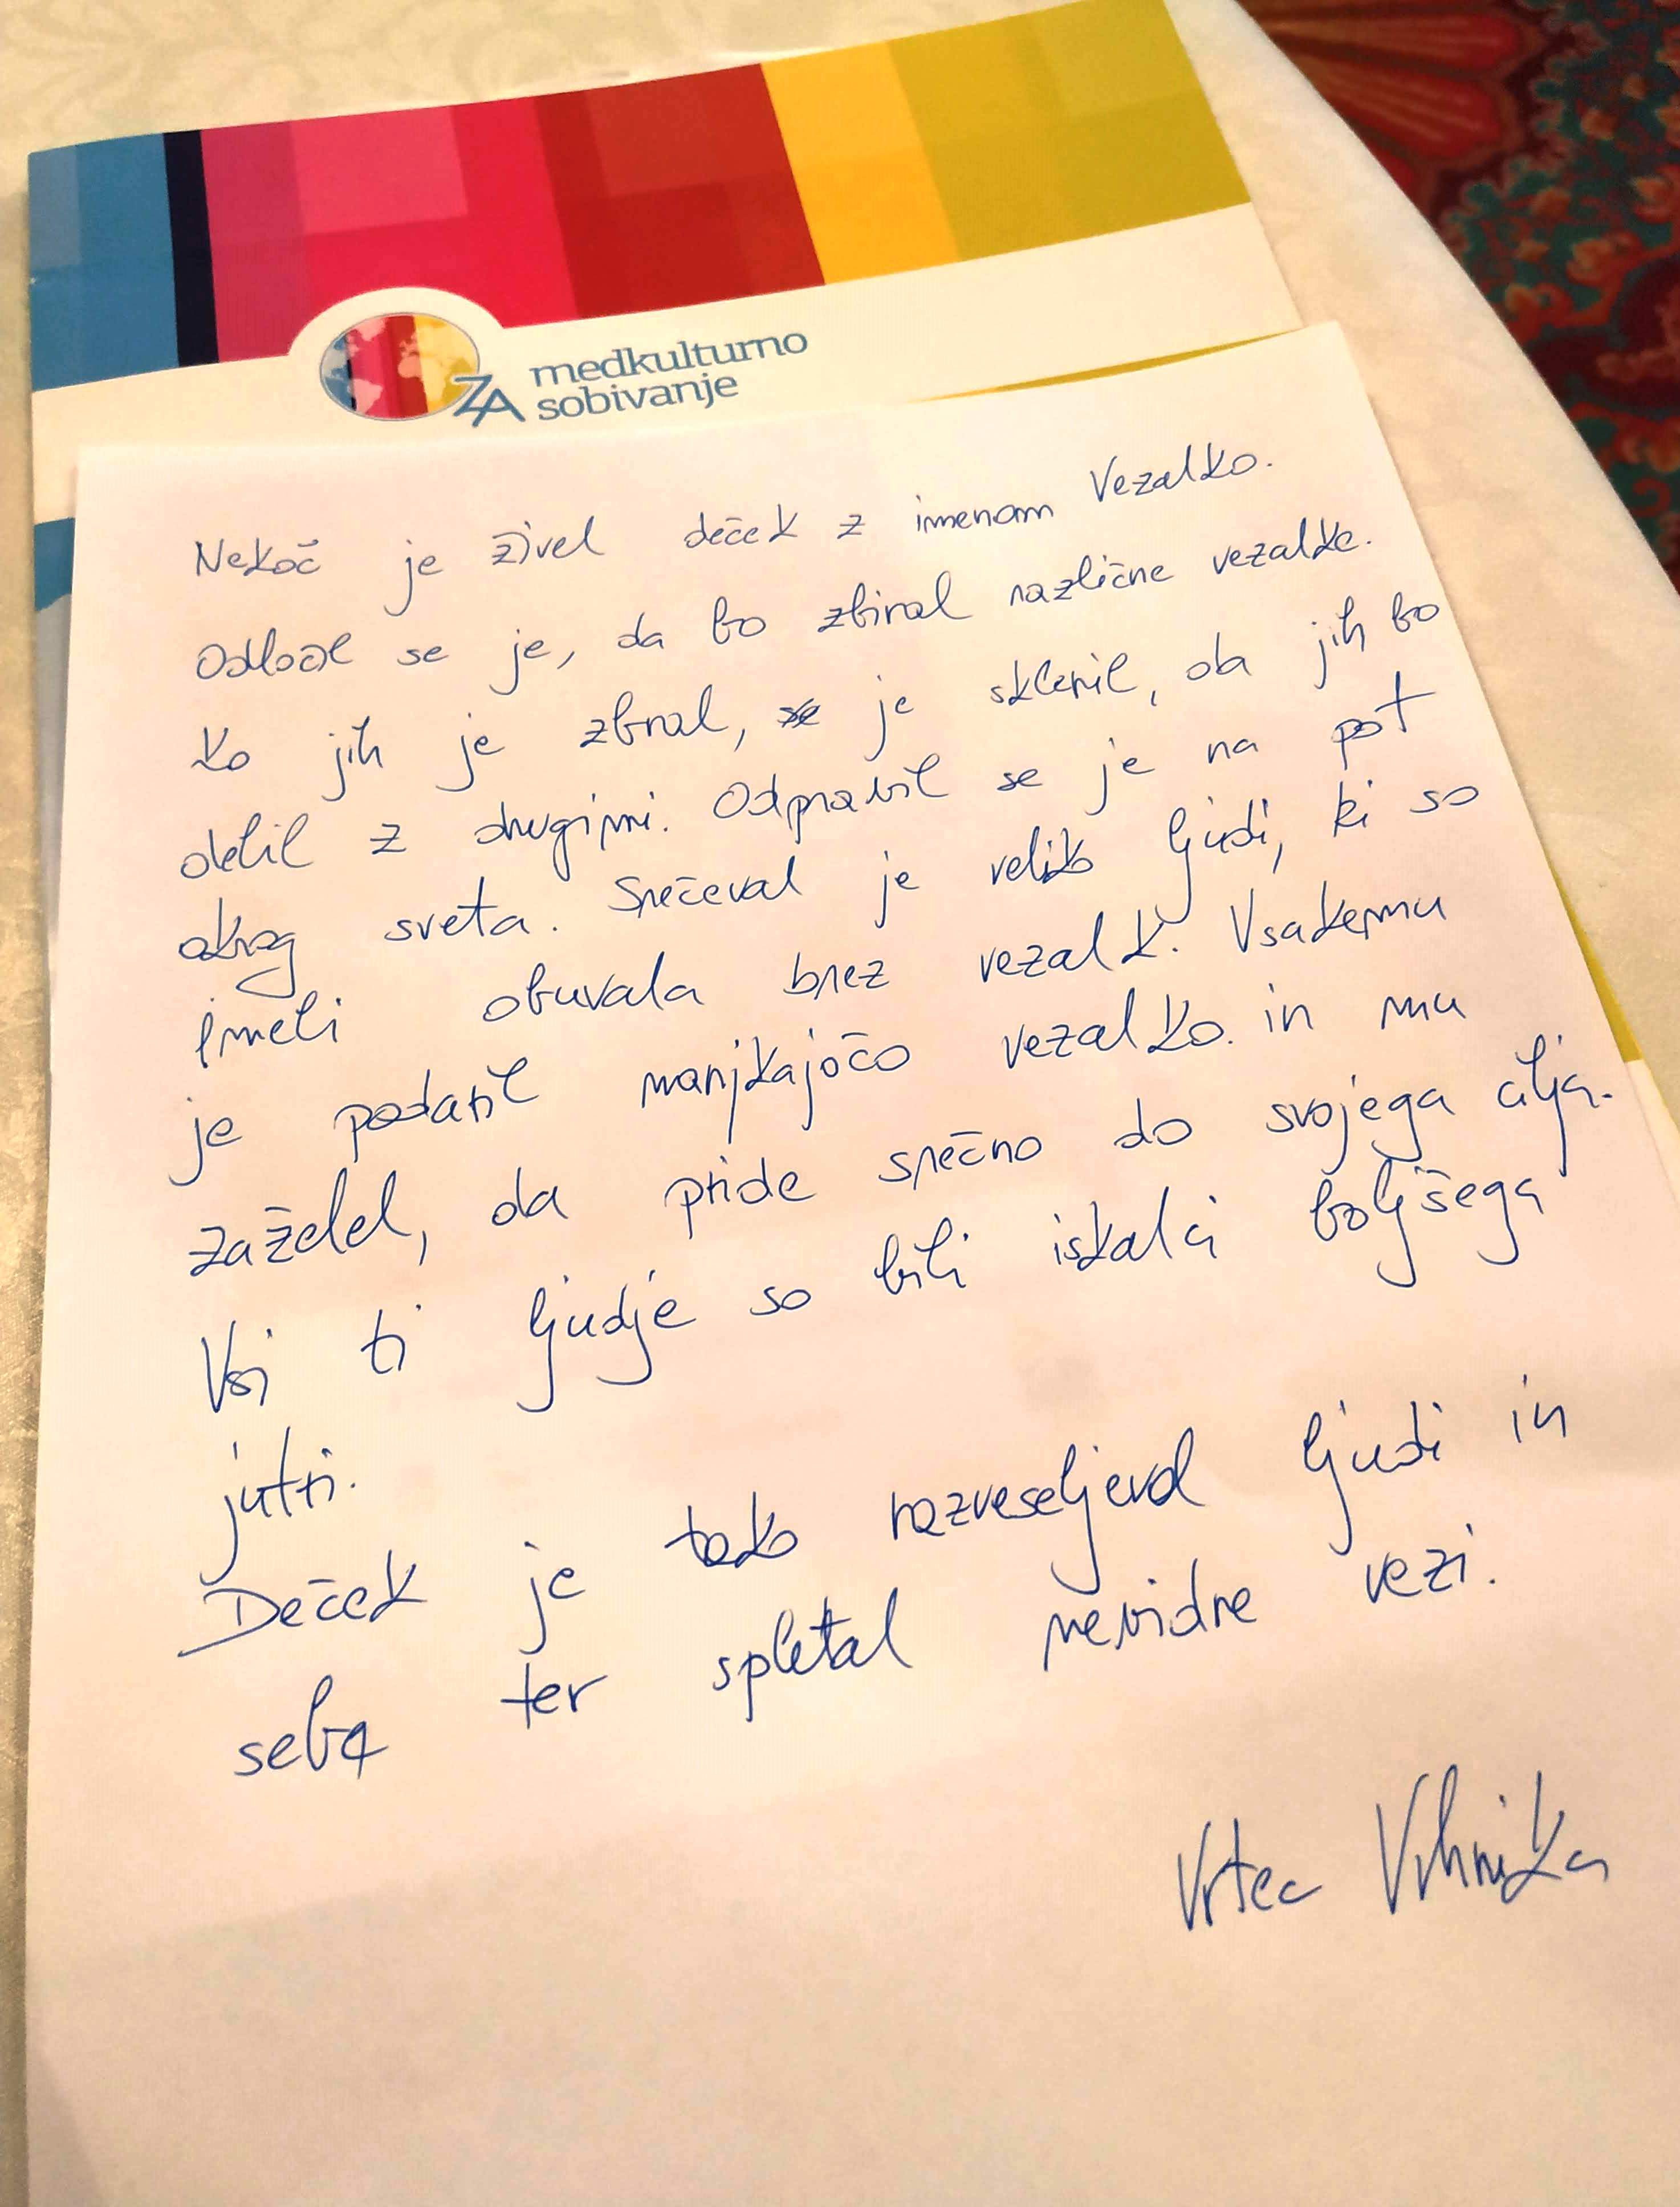 ZA medkulturno
sobivanje
Nekoč je živel deček z imenom Vezalko.
Odločil se je, da bo zbiral različne vezalke.
Ko jih je zbral, se je sklenil, da jih bo
delil z drugimi. Odpravil se je na pot
okrog sveta. Srečeval je veliko ljudi, ki so
imeli obuvala brez vezalk. Vsakemu
je podaril manjkajočo vezalko in mu
zaželel, da pride srečno do svojega cilja.
Vsi ti ljudje so bili iskalci boljšega
jutri.
Deček je tako razveseljeval ljudi in
sebe ter spletal nevidne vezi.
Vrtec Vrhnika